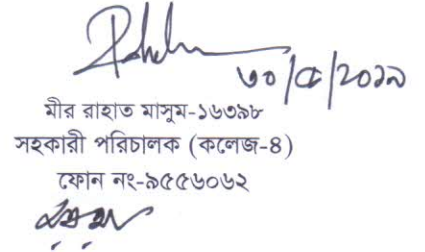 ৩০/৫/২০১৯
মীর রাহাত মাসুম-১৬৩৯৮
সহকারী পরিচালক (কলেজ-৪)
ফোন নং-৯৫৫৬০৬২